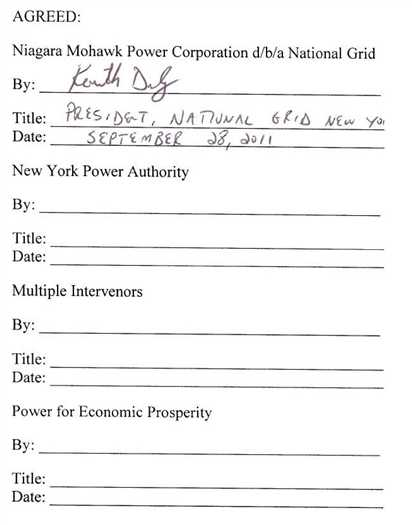 AGREED:
Niagara Mohawk Power Corporation d/b/a National Grid
By:
Title: PRESIDENT, NATIONAL GRID NEW YO
Date: SEPTEMBER 28, 2011
New York Power Authority
By:
Title:
Date:
Multiple Intervenors
By:
Title:
Date:
Power for Economic Prosperity
By:
Title:
Date: